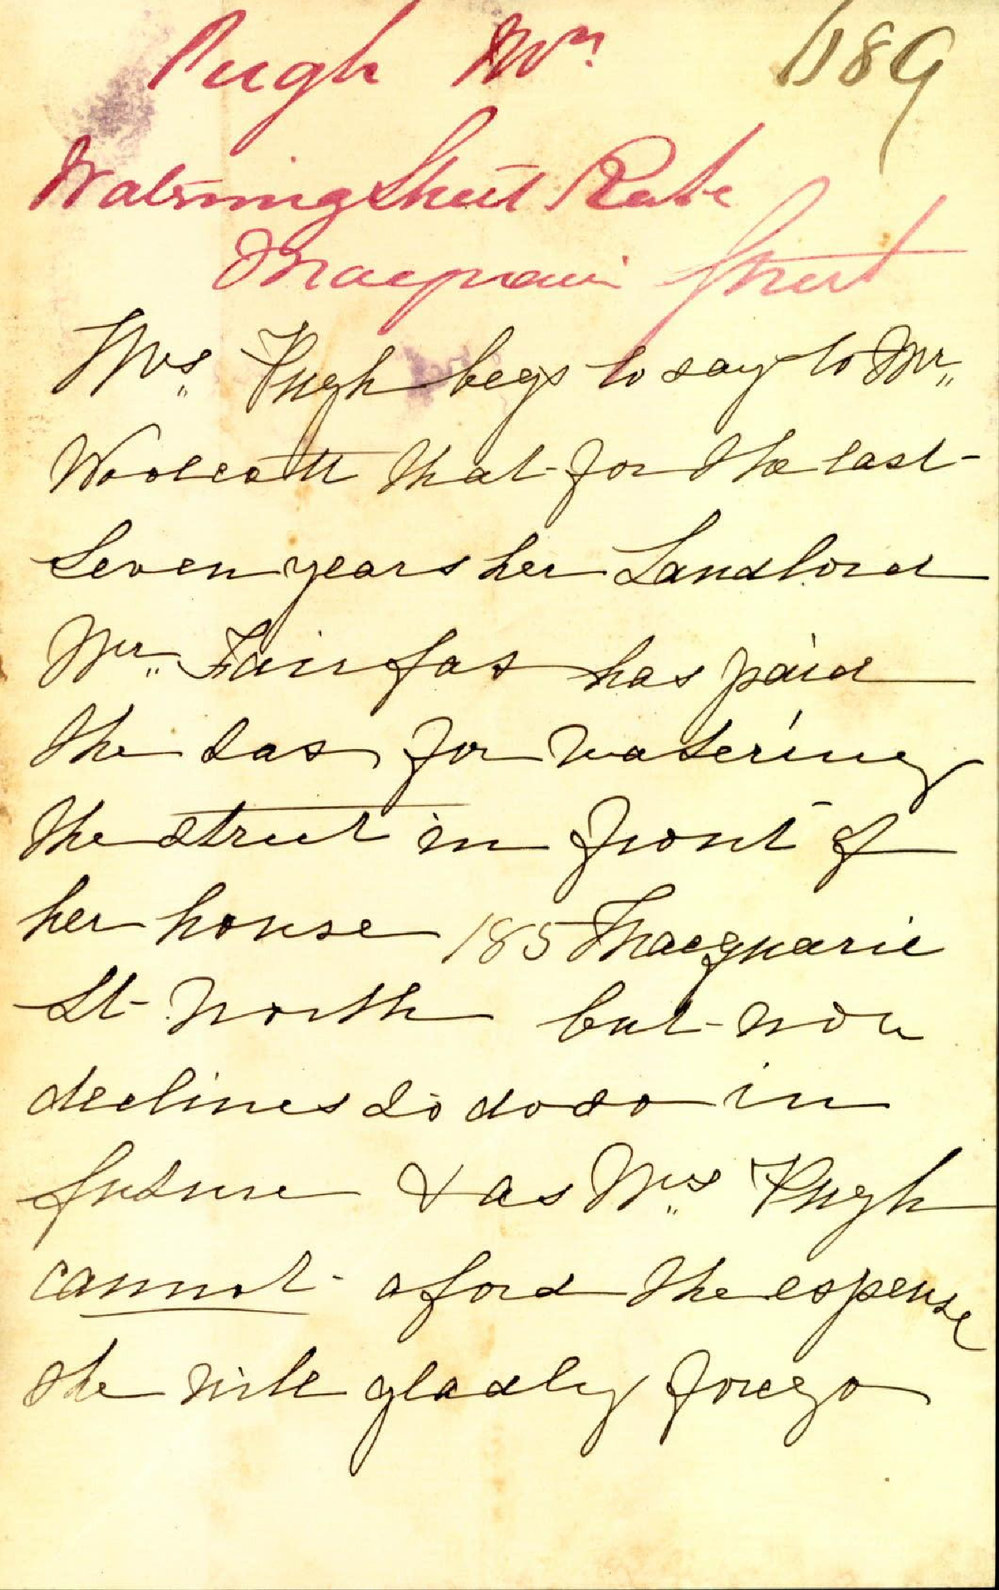 Pugh Mrs 1189
Watering Street Rate
Macquarie Street
Mrs. Pugh begs to say to Mr.
Woolcott that for the last
Seven years her Landlord
Mr. Fairfax has paid
the tax for watering
the street in front of
her house 185 Macquarie
St North but now
declines to do so in
future & as Mrs. Pugh
cannot aford the expense
she will gladly forego